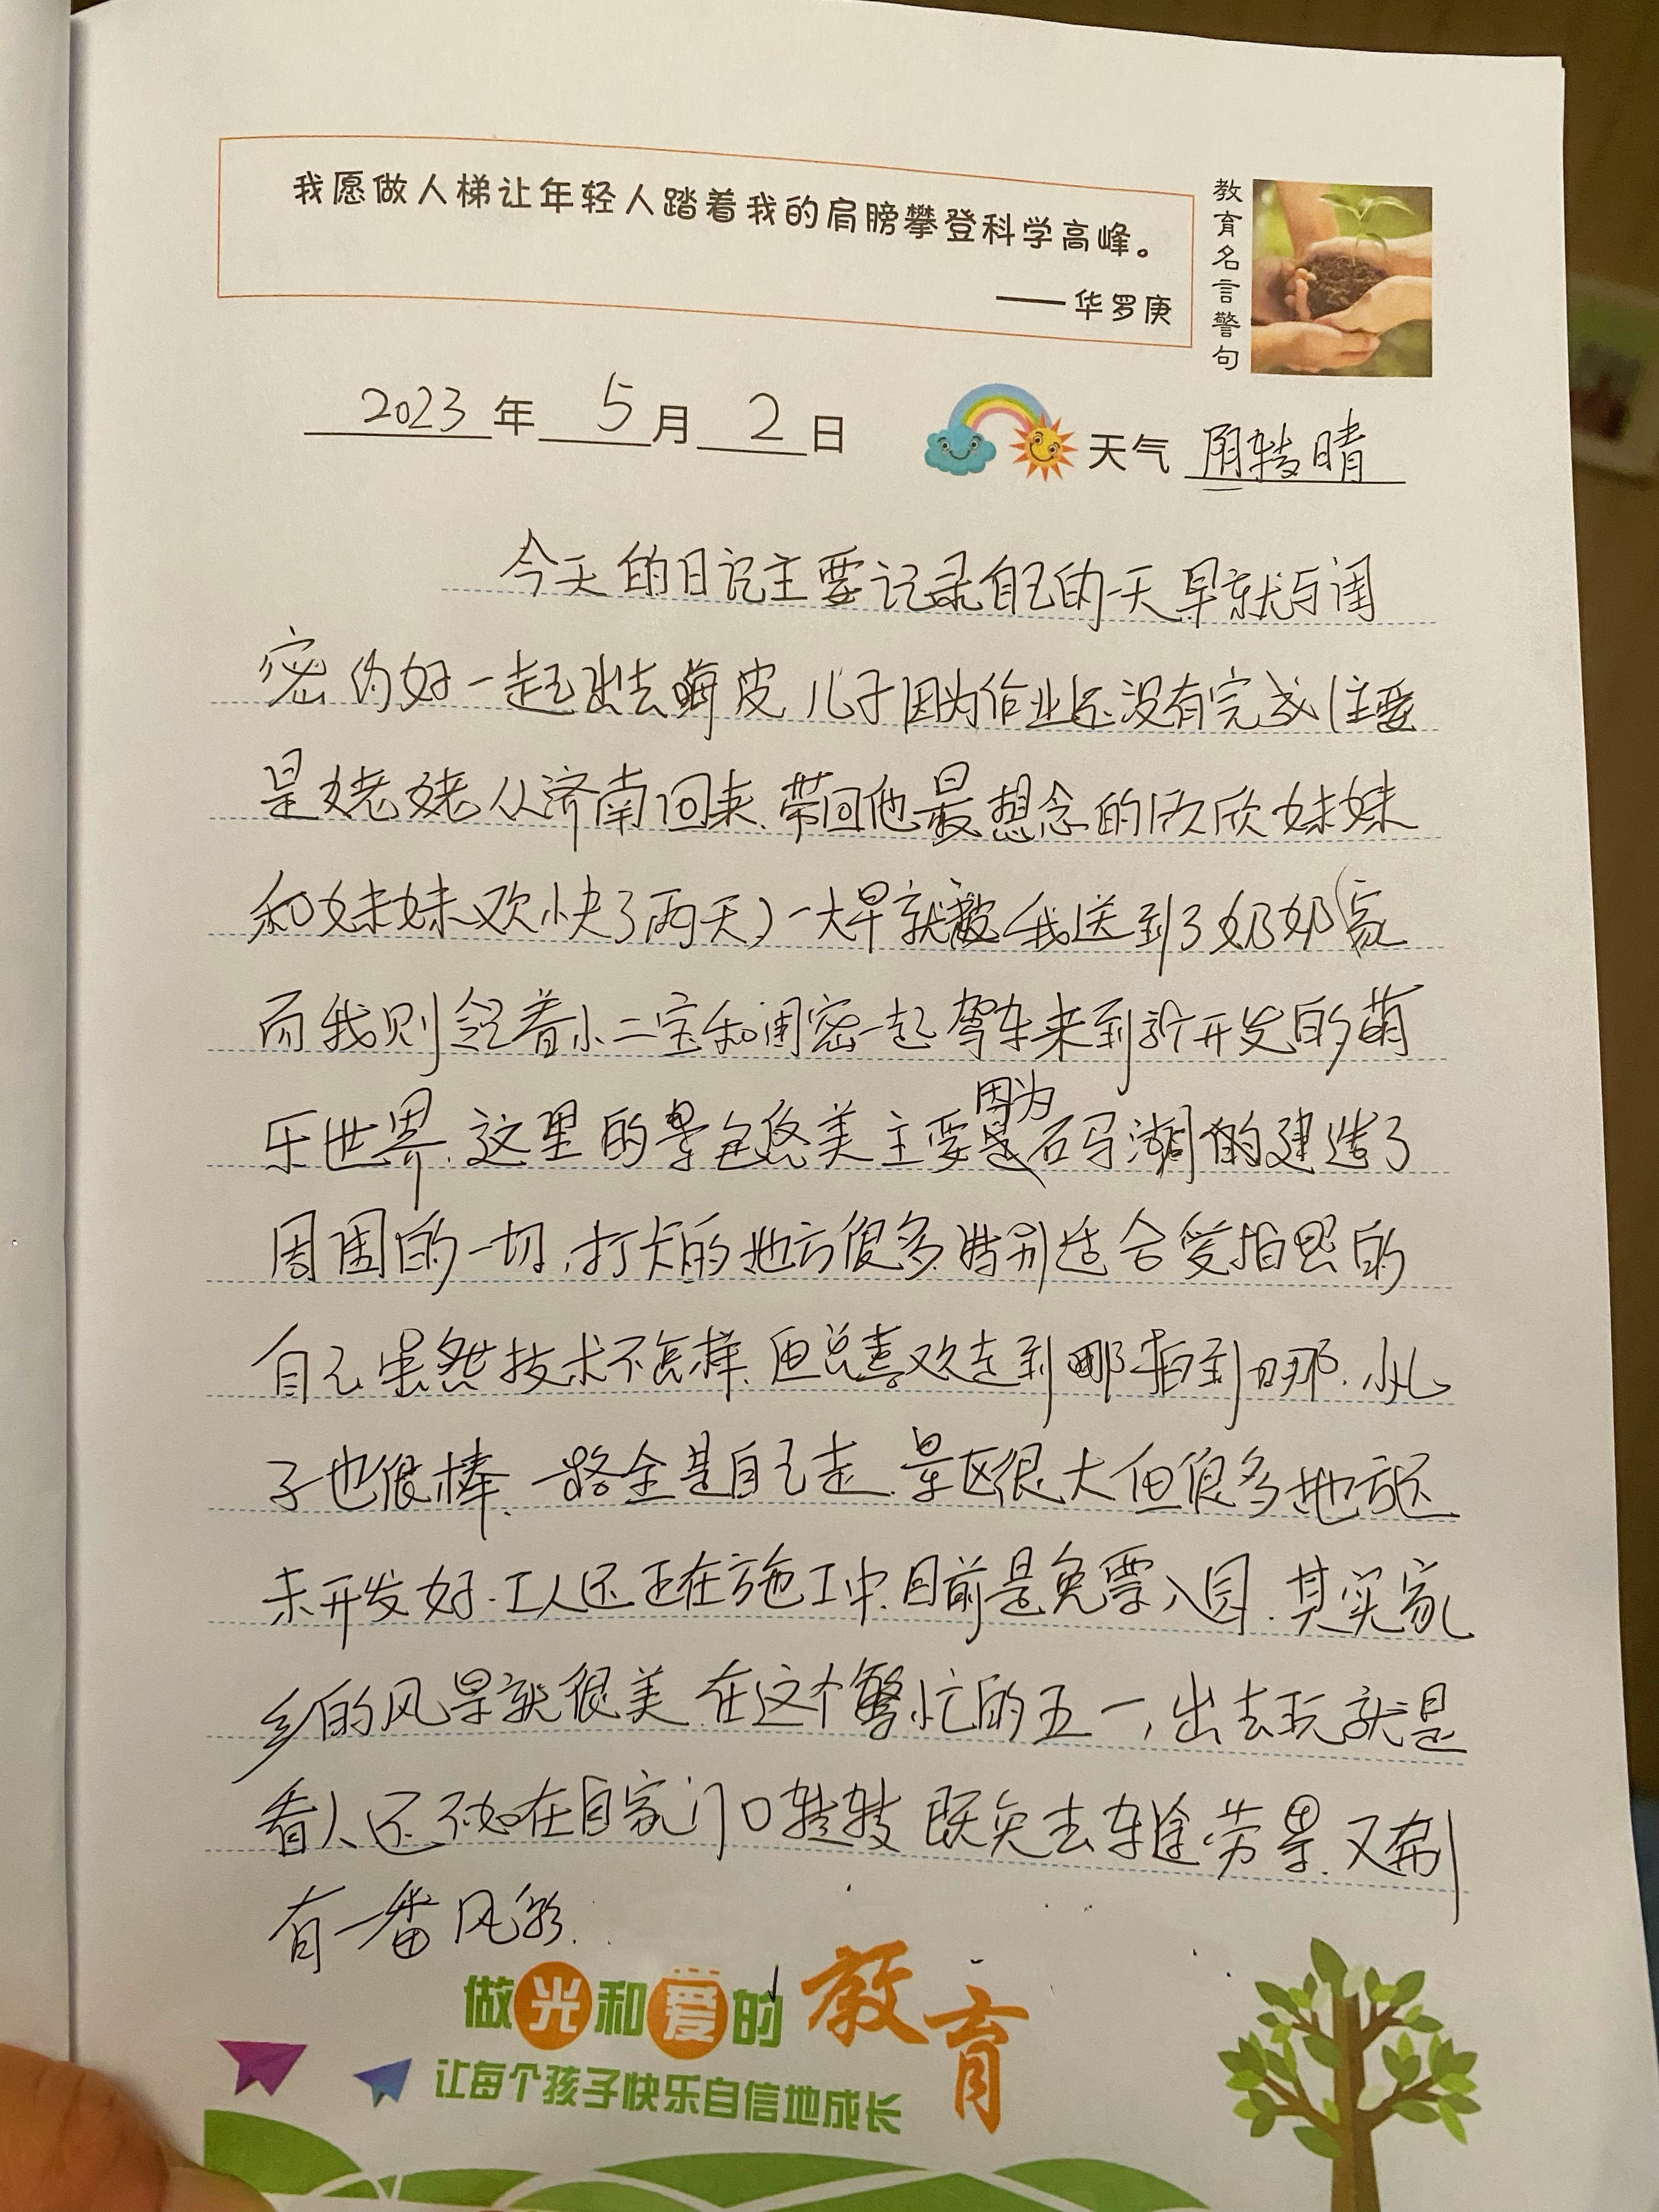 我愿做人梯让年轻人踏着我的肩膀攀登科学高峰。
——华罗庚
教育名言警句
2023年 5月 2日 天气 阴转晴
今天的日记主要记录自己的一天早就与闺
密约好一起出去嗨皮儿子因为作业还没有完成(主要
是姥姥从济南回来.带回他最想念的欣欣妹妹
和妹妹欢快了两天)一大早就被我送到了奶奶家
而我则领着小二宝和闺密一起驾车来到新开发的萌
乐世界.这里的景色悠美主要因为石马湖的建造了
周围的一切,打卡的地方很多特别适合爱拍照的
自己虽然技术不怎样.但总喜欢走到哪拍到哪.小儿
子也很棒.一路全是自己走.景区很大但很多地方还
未开发好.工人还正在施工中.目前是免票入园.其实家
乡的风景就很美.在这个繁忙的五一,出去玩就是
看人还不如在自家门口转转既免去车途劳累.又别
有一番风彩.
做光和爱的教育
让每个孩子快乐自信地成长